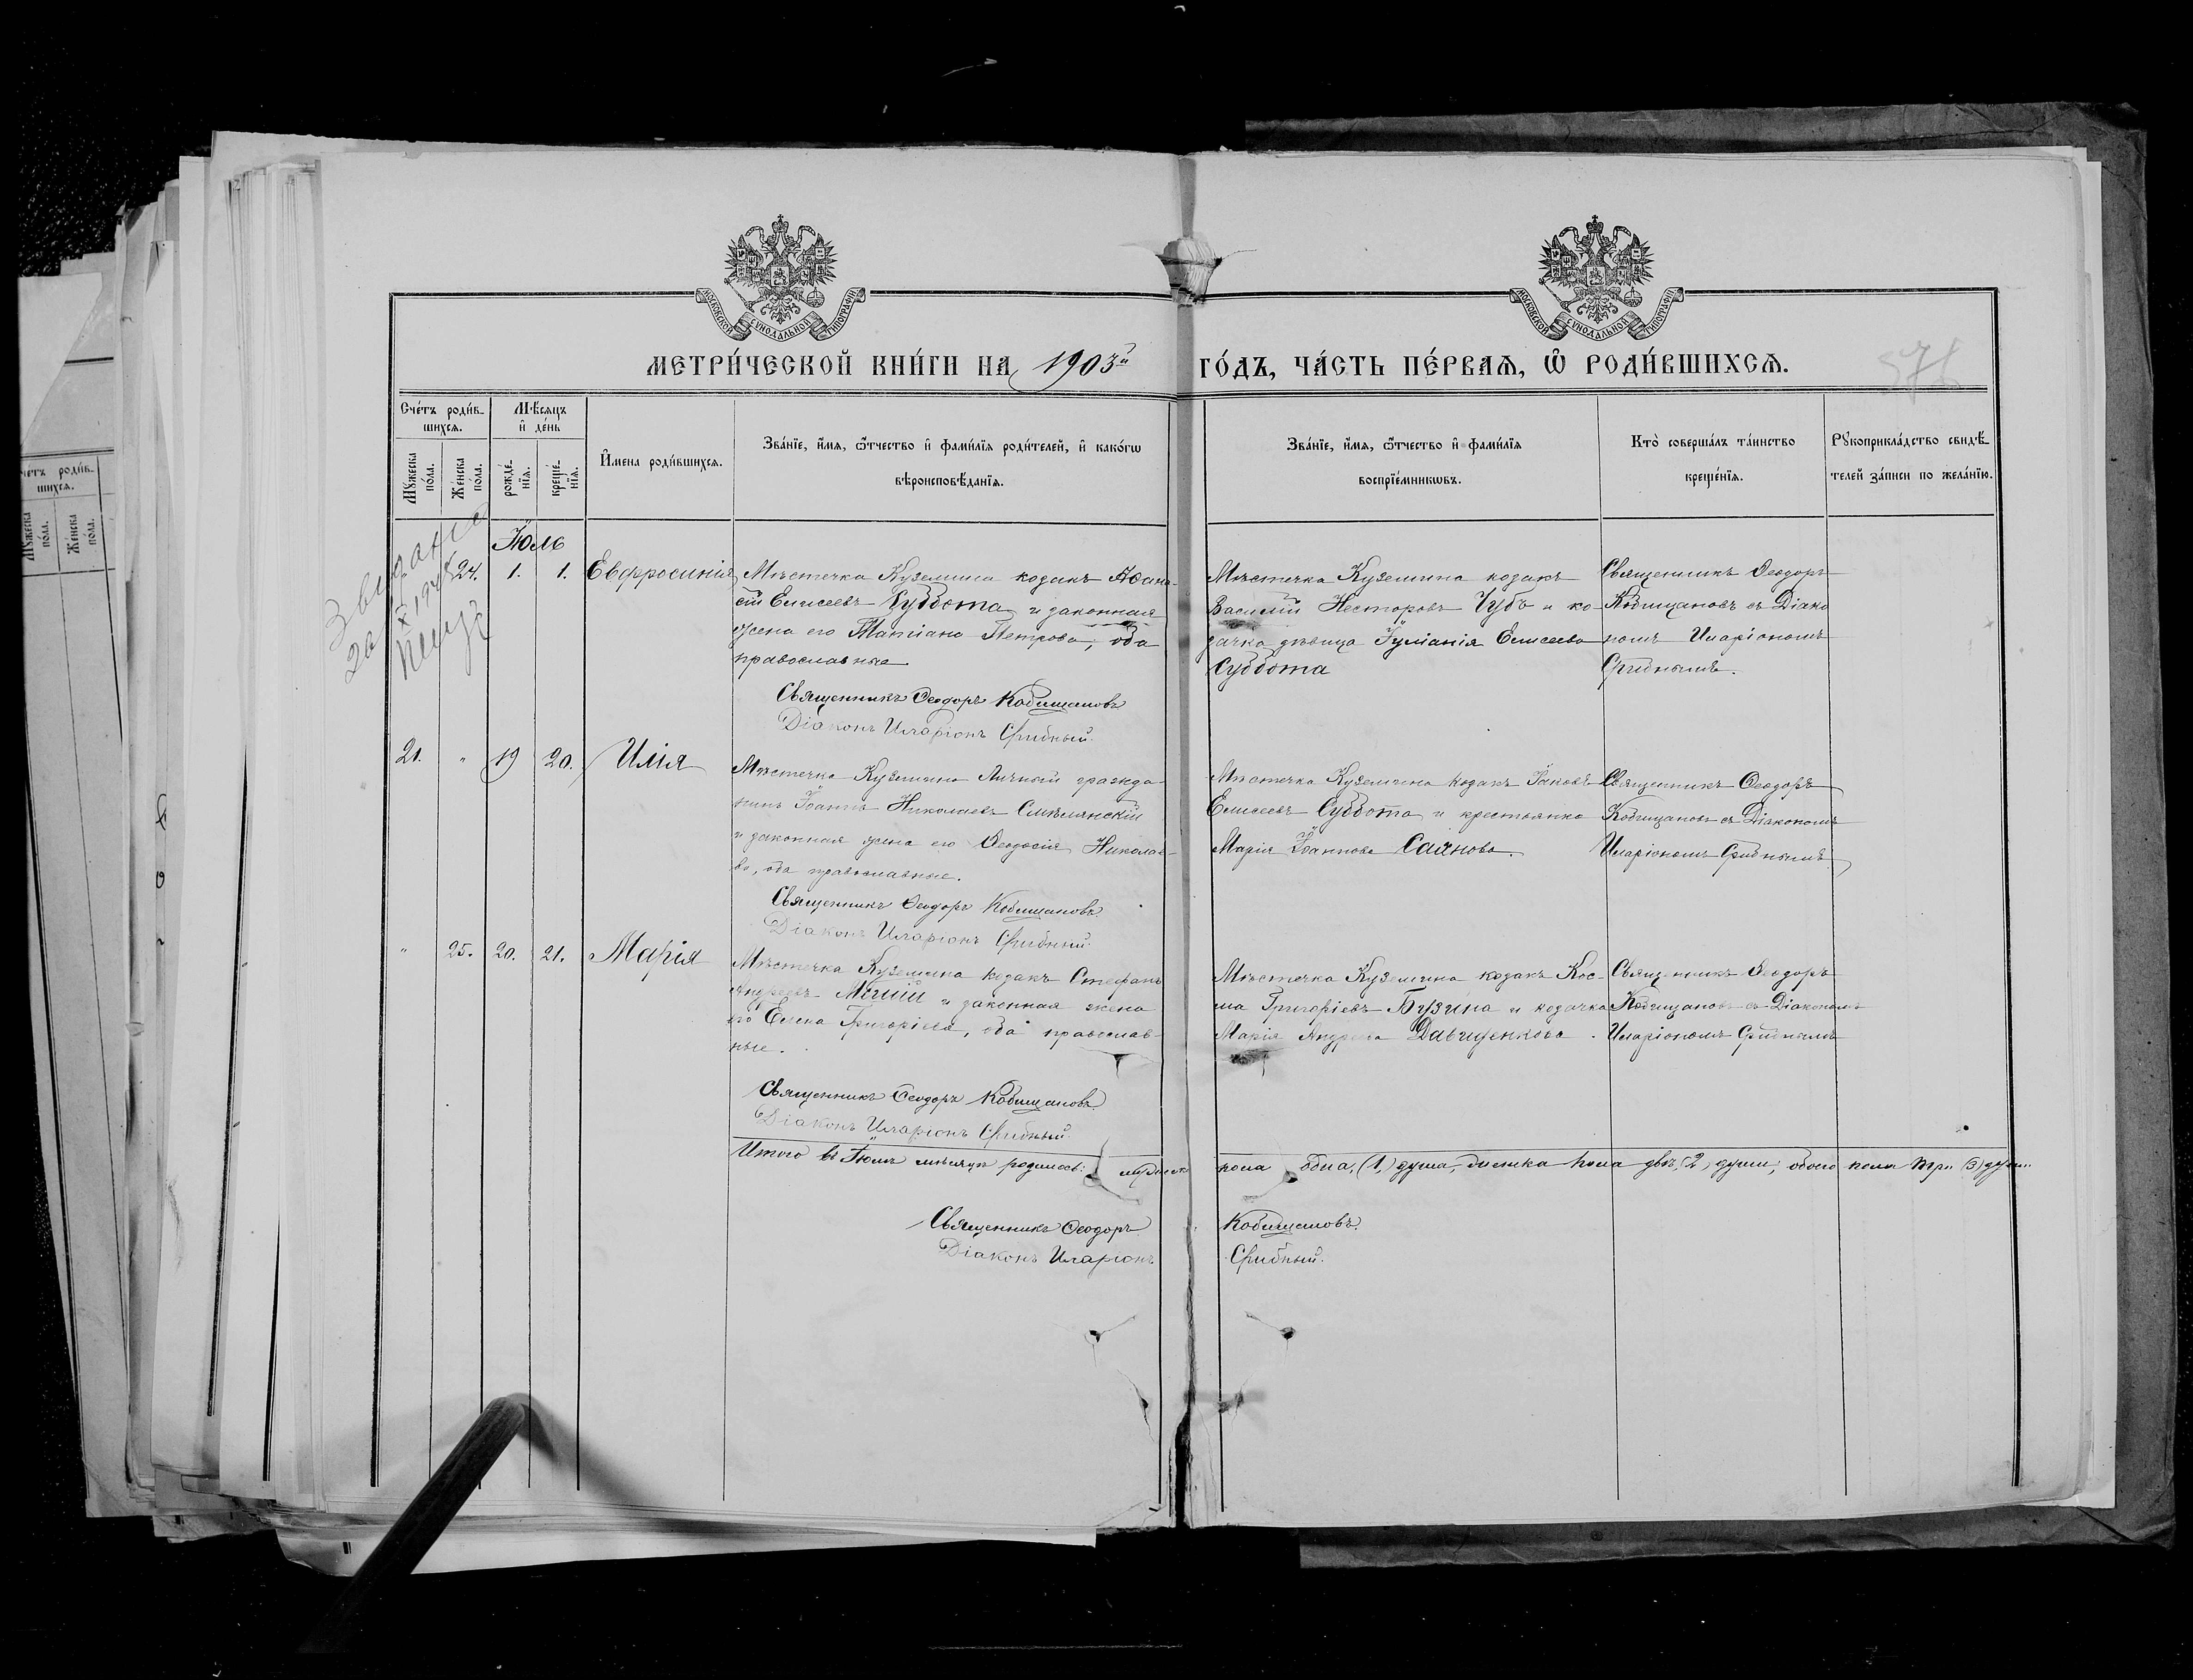 МОСКОВСКОЙ СѴНОДАЛЬНОЙ ТИПОГРАФІИ
МОСКОВСКОЙ СѴНОДАЛЬНОЙ ТИПОГРАФІИ
МЕТРИ́ЧЕСКОЙ КНИ́ГИ НА 1903й ГО́ДЪ, ЧА́СТЬ ПЕ́РВАѦ, Ѽ РОДИ́ВШИХСѦ.
576
Сче́тъ роди́в-
шихсѧ.
Мѣ́сѧцъ
и҆ де́нь
Мꙋ́жеска
по́ла.
Же́нска
по́ла.
рожде́-
нїѧ.
креще́-
нїѧ.
И҆мена роди́вшихсѧ.
Зва́нїе, и҆́мѧ, ѻ҆́тчество и҆ фами́лїѧ роди́телей, и҆ како́гѡ
вѣроисповѣ́данїѧ.
Зва́нїе, и҆́мѧ, ѻ҆́тчество и҆ фами́лїѧ
воспрїе́мникѡвъ.
Кто̀ соверша́лъ та́инство
креще́нїѧ.
Рꙋкоприкла́дство свидѣ́-
телей за́писи по жела́нїю.
Іюль
24. 1. 1. Евфросинія
Мѣстечка Куземина козакъ Аѳана-
сій Елисеевъ Суббота и законная
жена его Татіана Петрова, оба
православные
Священникъ Ѳеодоръ Кобищановъ
Діаконъ Иларіонъ Срибный.
Мѣстечка Куземина козакъ
Василій Несторовъ Чубъ и ко-
зачка дѣвица Іуліанія Елисеева
Суббота
Священникъ Ѳеодоръ
Кобищановъ съ Діако
номъ Иларіономъ
Срибнымъ.
21. " 19 20. Илія
Мѣстечка Куземина Личный гражда
нинъ Іоаннъ Николаевъ Смѣлянскій
и законная жена его Ѳеодосія Николае-
ва, оба православные.
Священникъ Ѳеодоръ Кобищановъ.
Діаконъ Иларіонъ Срибный.
Мѣстечка Куземина козакъ Іаковъ
Елисеевъ Суббота и крестьянка
Марія Іоаннова Саянова.
Священникъ Ѳеодоръ
Кобищановъ съ Діакономъ
Иларіономъ Срибнымъ
" 25. 20. 21. Марія
Мѣстечка Куземина козакъ Стефанъ
Андреевъ и законная жена
его Елена Григоріева, оба православ-
ные.
Священникъ Ѳеодоръ Кобищановъ.
Діаконъ Иларіонъ Срибный.
Мѣстечка Куземина козакъ Кос-
ма Григоріевъ Бузина и козачка
Марія Андреева Давиденкова.
Священникъ Ѳеодоръ
Кобищановъ съ Діакономъ
Иларіономъ Срибнымъ
Итого въ Іюлѣ мѣсяцѣ родилось: мужска пола одна, (1) душа, женска пола двѣ, (2) души, обоего пола три (3) души
Священникъ Ѳеодоръ Кобищановъ.
Діаконъ Иларіонъ Срибный.